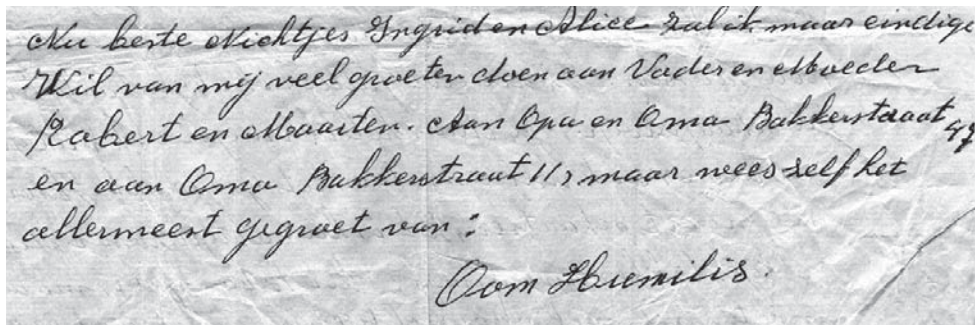 Nu beste Nichtjes Ingrid en Alice zal ik maar eindige
Wil van mij veel groeten doen aan Vader en Moeder
Robert en Maarten. Aan Opa en Oma Bakkerstraat 47
en aan Oma Bakkerstraat 11, maar wees zelf het
allermeest gegroet van:
Oom Humilis.